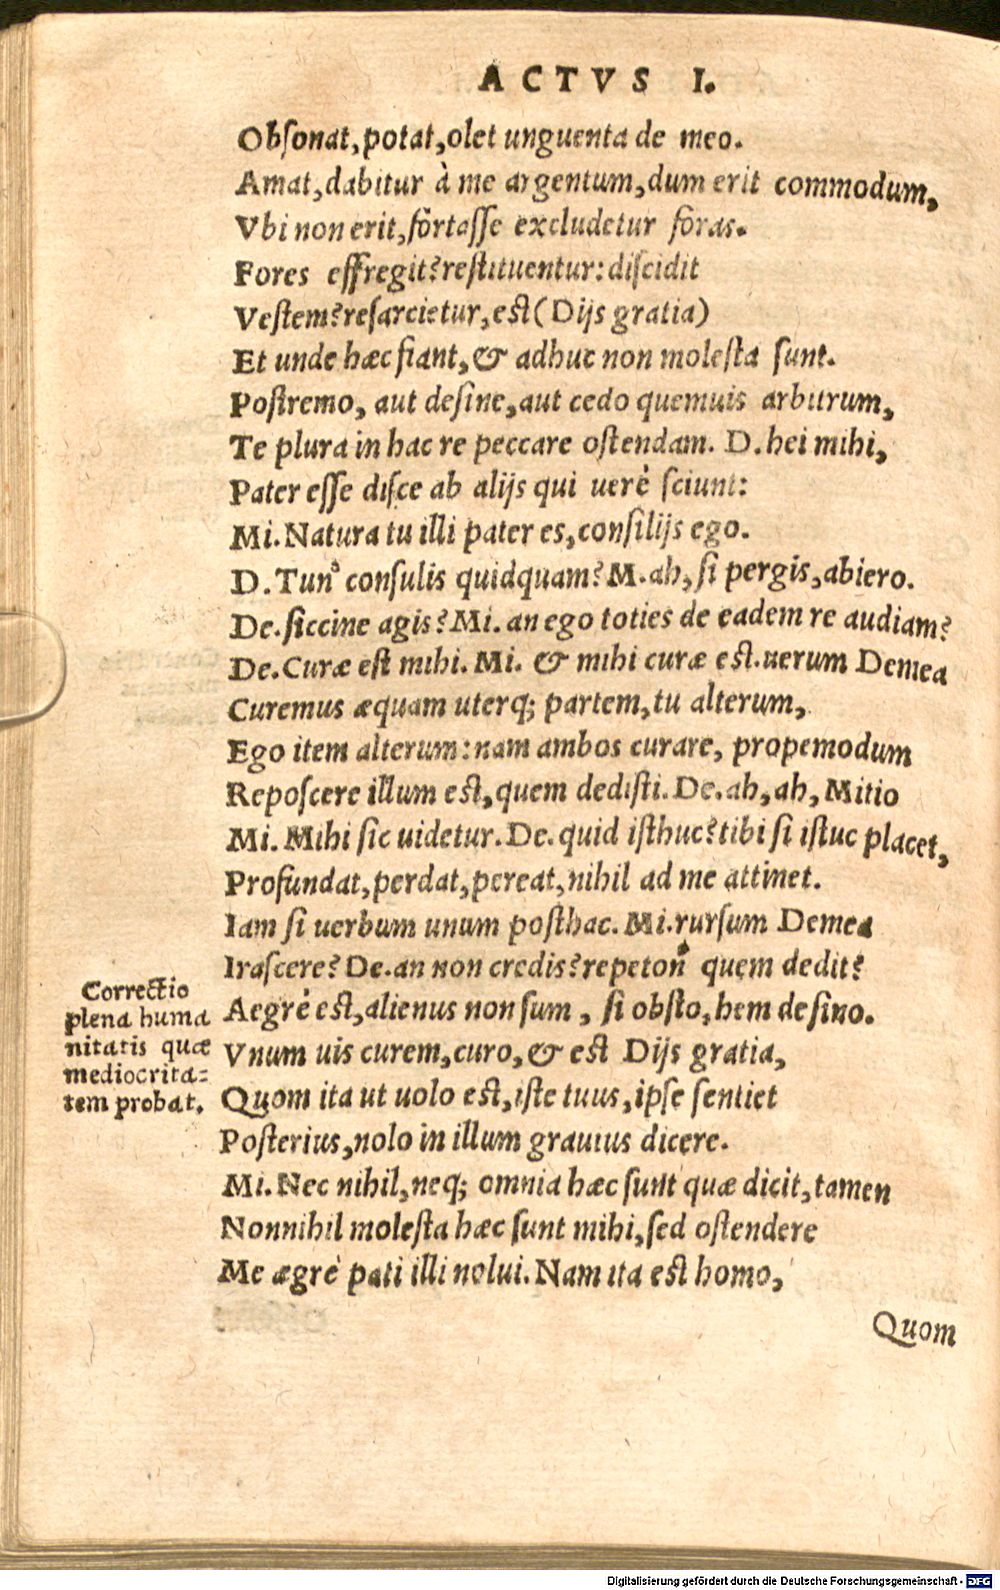 ACTVS I.
Obſonat, potat, olet unguenta de meo.
Amat, dabitur à me argentum, dum erit commodum,
Vbi non erit, fortaſſe excludetur foras.
Fores effregit? reſtituentur: diſcidit
Veſtem? reſarcietur, eſt (Dijs gratia)
Et unde hæc fiant, & adhuc non moleſta ſunt.
Poſtremo, aut deſine, aut cedo quemuis arbitrum,
Te plura in hac re peccare oſtendam. D. hei mihi,
Pater eſſe diſce ab alijs qui uerè ſciunt:
Mi. Natura tu illi pater es, conſilijs ego.
D. Tun' conſulis quidquam? M. ah, ſi pergis, abiero.
De. ſiccine agis? Mi. an ego toties de eadem re audiam?
De. Curæ eſt mihi. Mi. & mihi curæ eſt. uerum Demea
Curemus æquam uterq; partem, tu alterum,
Ego item alterum: nam ambos curare, propemodum
Repoſcere illum eſt, quem dediſti. De. ah, ah, Mitio
Mi. Mihi ſic uidetur. De. quid iſthuc? tibi ſi iſtuc placet,
Profundat, perdat, pereat, nihil ad me attinet.
Iam ſi uerbum unum poſthac. Mi. rurſum Demea
Iraſcere? De. an non credis? repeton' quem dedi?
Aegrè eſt, alienus non ſum, ſi obſto, hem deſino.
Vnum uis curem, curo, & eſt Dijs gratia,
Quom ita ut uolo eſt, iſte tuus, ipſe ſentiet
Poſterius, nolo in illum grauius dicere.
Mi. Nec nihil, neq; omnia hæc ſunt quæ dicit, tamen
Nonnihil moleſta hæc ſunt mihi, ſed oſtendere
Me ægrè pati illi nolui. Nam ita eſt homo,
Quom
Correctio
plena huma
nitatis quæ
mediocrita=
tem probat.
Digitalisierung gefördert durch die Deutsche Forschungsgemeinschaft - DFG